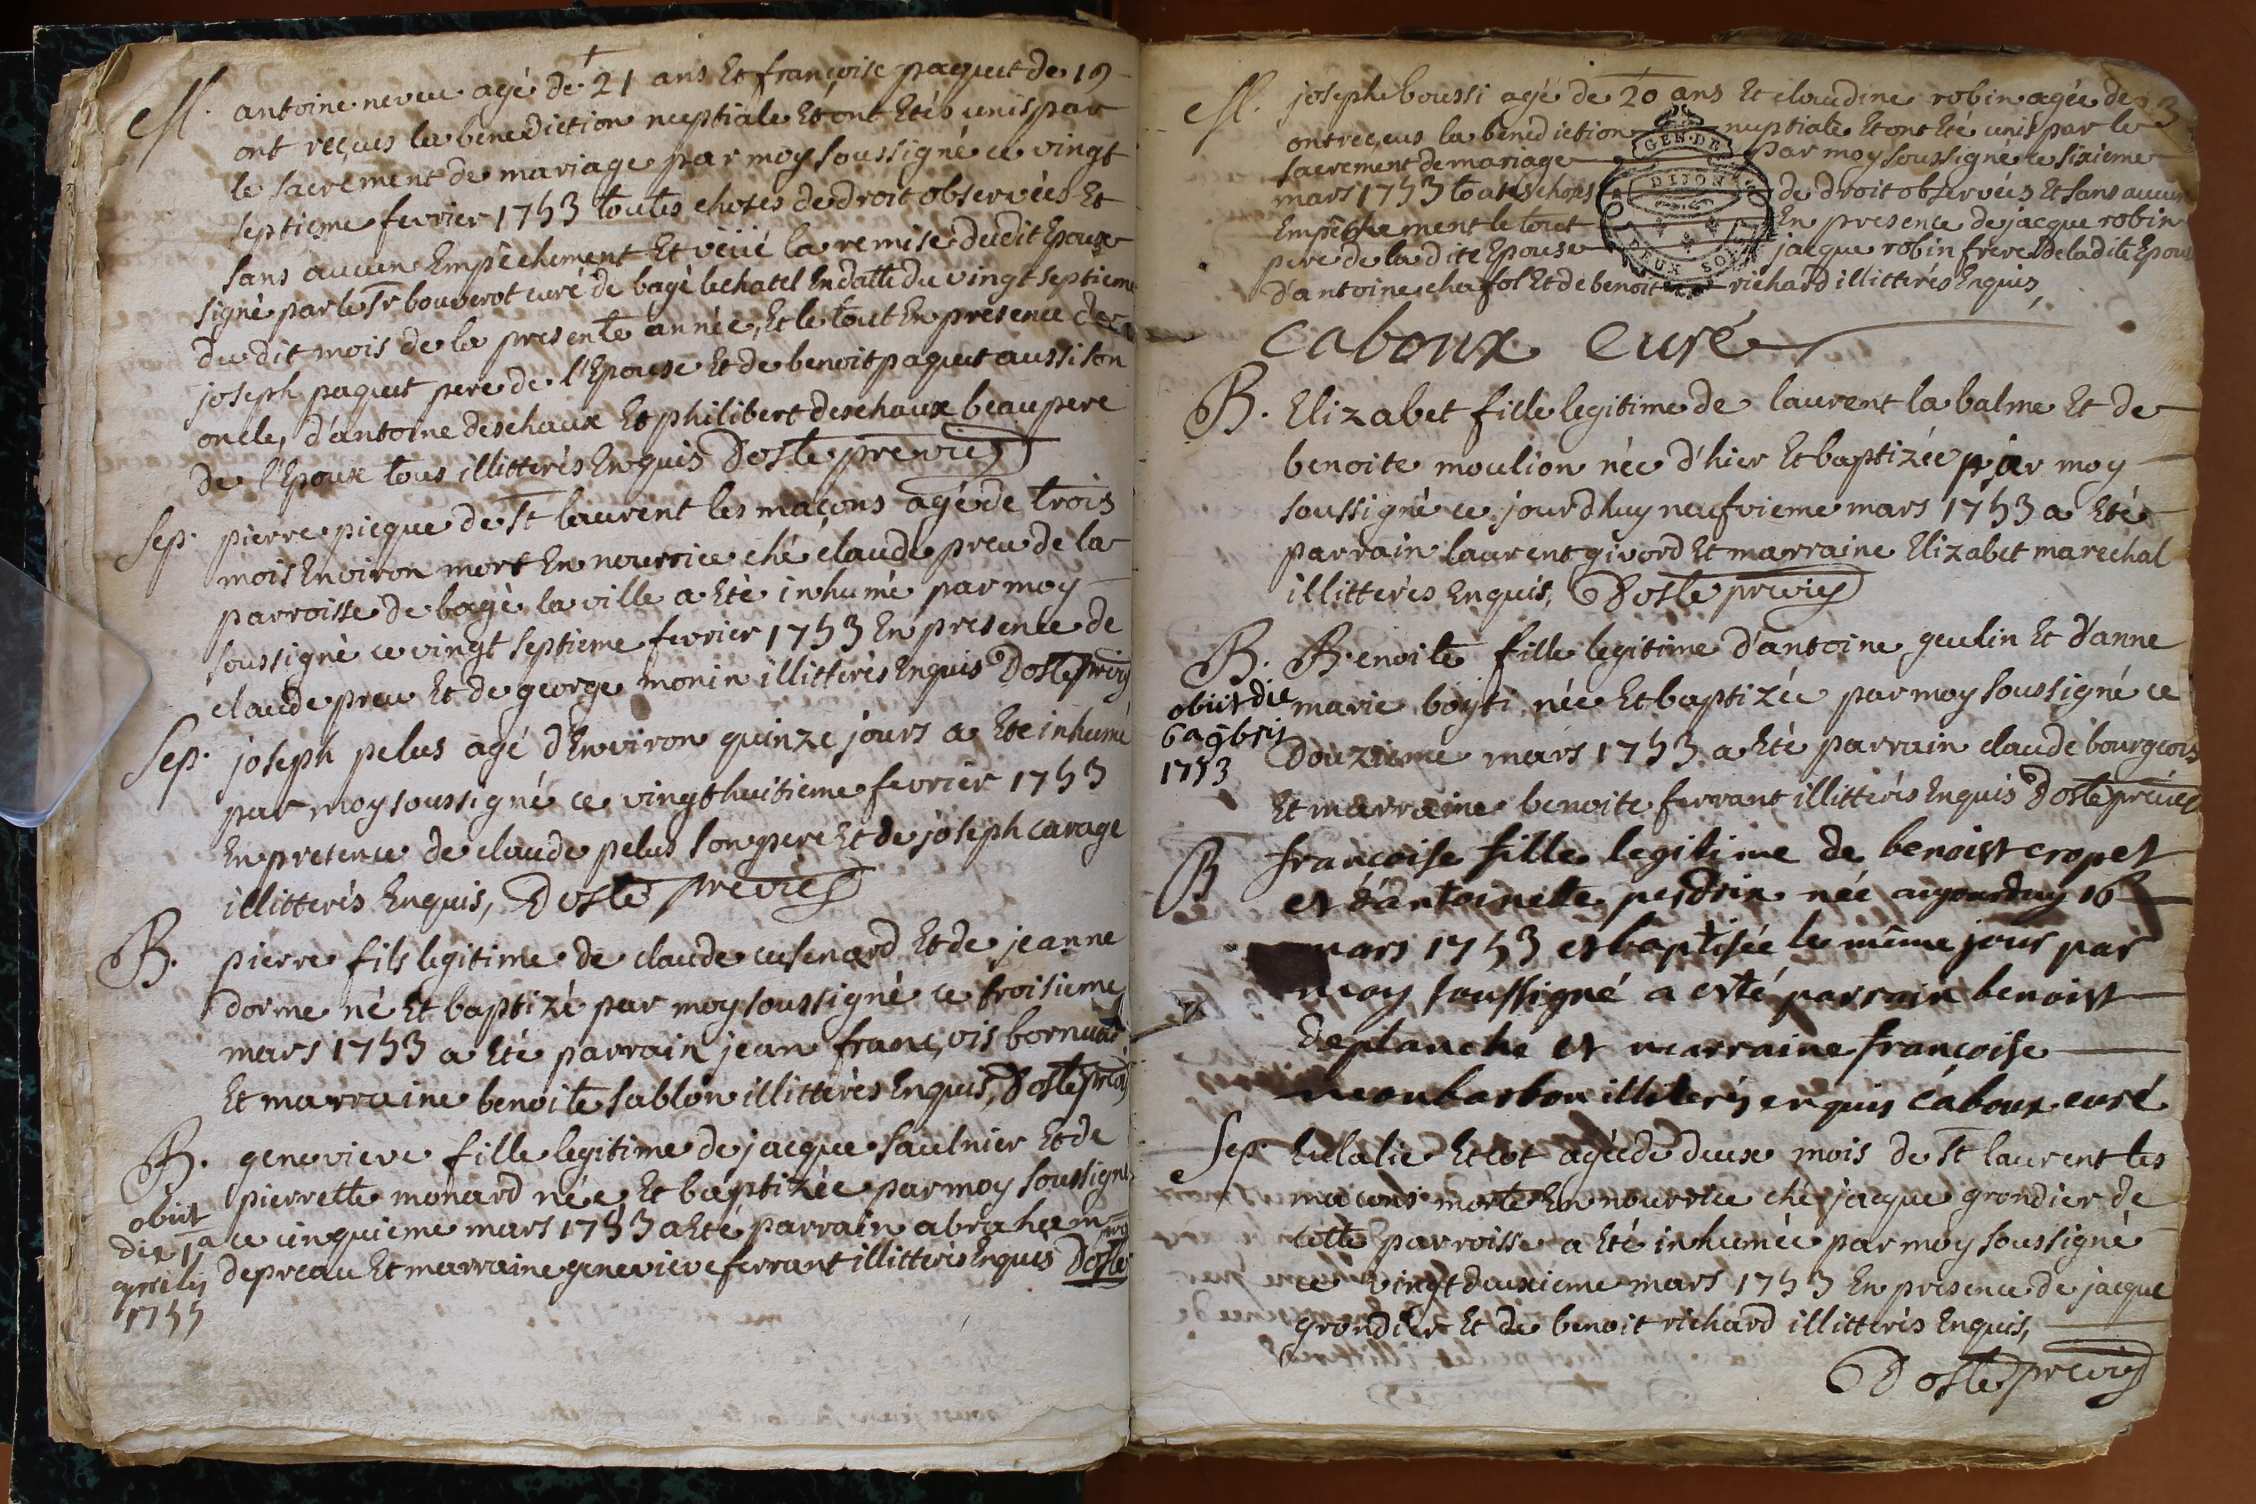 M. antoine neveu agé de 21 ans Et françoise paquet de 19
ont reçus la benediction nuptiale Et ont Etés unis par
le sacrement de mariage par moy soussigné ce vingt
septieme fevrier 1753 toutes choses de droit observées Et
sans aucun Empêchement Et vëüe la remise dudit Epoux
signé par le Sr bouverot curé de bagé le chatel En datte du vingt septieme
du dit mois de la presente année, Et le tout En presence de
joseph paquet pere de l'Epouse Et de benoit paquet aussi son
oncle, d'antoine deschaux Et philibert deschaux beaupere
de l'Epoux tous illitterés Enquis Doste
Sep. pierre picque de St laurent les maçons agé de trois
mois Environ mort En nourrice ché claude preu de la
parroisse de bagé la ville a Eté inhumé par moy
soussigné ce vingt septieme fevrier 1753 En presence de
claude preu Et de george monin illitterés Enquis Doste
Sep. joseph pelus agé d'Environ quinze jours a Eté inhumé
par moy soussigné ce vingt huitieme fevrier 1753
En presence de claude pelus son pere Et de joseph carage
illitterés Enquis, Doste
B. pierre fils legitime de claude cusenard Et de jeanne
dorme né Et baptizé par moy soussigné ce troisieme
mars 1753 a Eté parrain jean françois
Et marraine benoite sablon illitterés Enquis, Doste
B. genevieve fille legitime de jacque saulnier Et de
pierrette monard née Et baptizée par moy soussigné
obiit
die 1a
aprilis
1755
ce cinquieme mars 1753 a Eté parrain abraham
depreau Et marraine genevieve ferrant illitterés Enquis Doste
M. joseph boussi agé de 20 ans Et claudine robin agée de 23
ont reçus la benediction nuptiale Et ont Eté unis par le
sacrement de mariage par moy soussigné ce sixieme
mars 1753 toutes choses de droit observées Et sans aucun
Empêchement le tout En presence de jacque robin
pere de la dite Epouse jacque robin frere de la dite Epouse
d'antoine chafol Et de benoit richard illitterés Enquis,
GEN. DE DIJON
DEUX SOLS
caboux curé
B. Elizabet fille legitime de laurent la balme Et de
benoite moulion née d'hier Et baptizée par moy
soussigné ce jourdhuy neufvieme mars 1753 a Eté
parrain laurent givord Et marraine Elizabet marechal
illitterés Enquis, Doste
B. Benoite fille legitime d'antoine geulin Et d'anne
obiit die
6a 9bris
1753
marie boyti née Et baptizée par moy soussigné ce
douzieme mars 1753 a Eté parrain claude bourgeois
Et marraine benoite ferrant illitterés Enquis Doste
B françoise fille legitime de benoist cropet
et d'antoinette perdrix née aujourduy 16
mars 1753 et baptisée le même jour par
moy soussigné a esté parrain benoist
deplanche et marraine françoise
monbarbon illiterés enquis caboux curé
Sep. Eulalie Etlot agée de deux mois de St laurent les
macons morte En nourrice ché jacque grondier de
cette parroisse a Eté inhumée par moy soussigné
ce vingt deuxieme mars 1753 En presence de jacque
grondier Et de benoit richard illitterés Enquis,
Doste